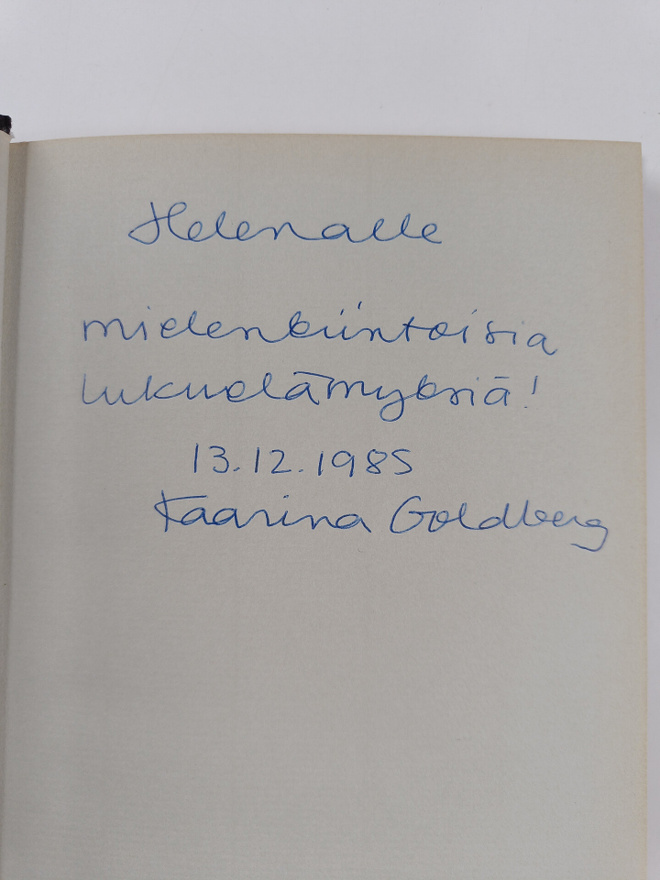 Helenalle
mielenkiintoisia
lukuelämyksiä!
13.12.1985
Kaarina Goldberg